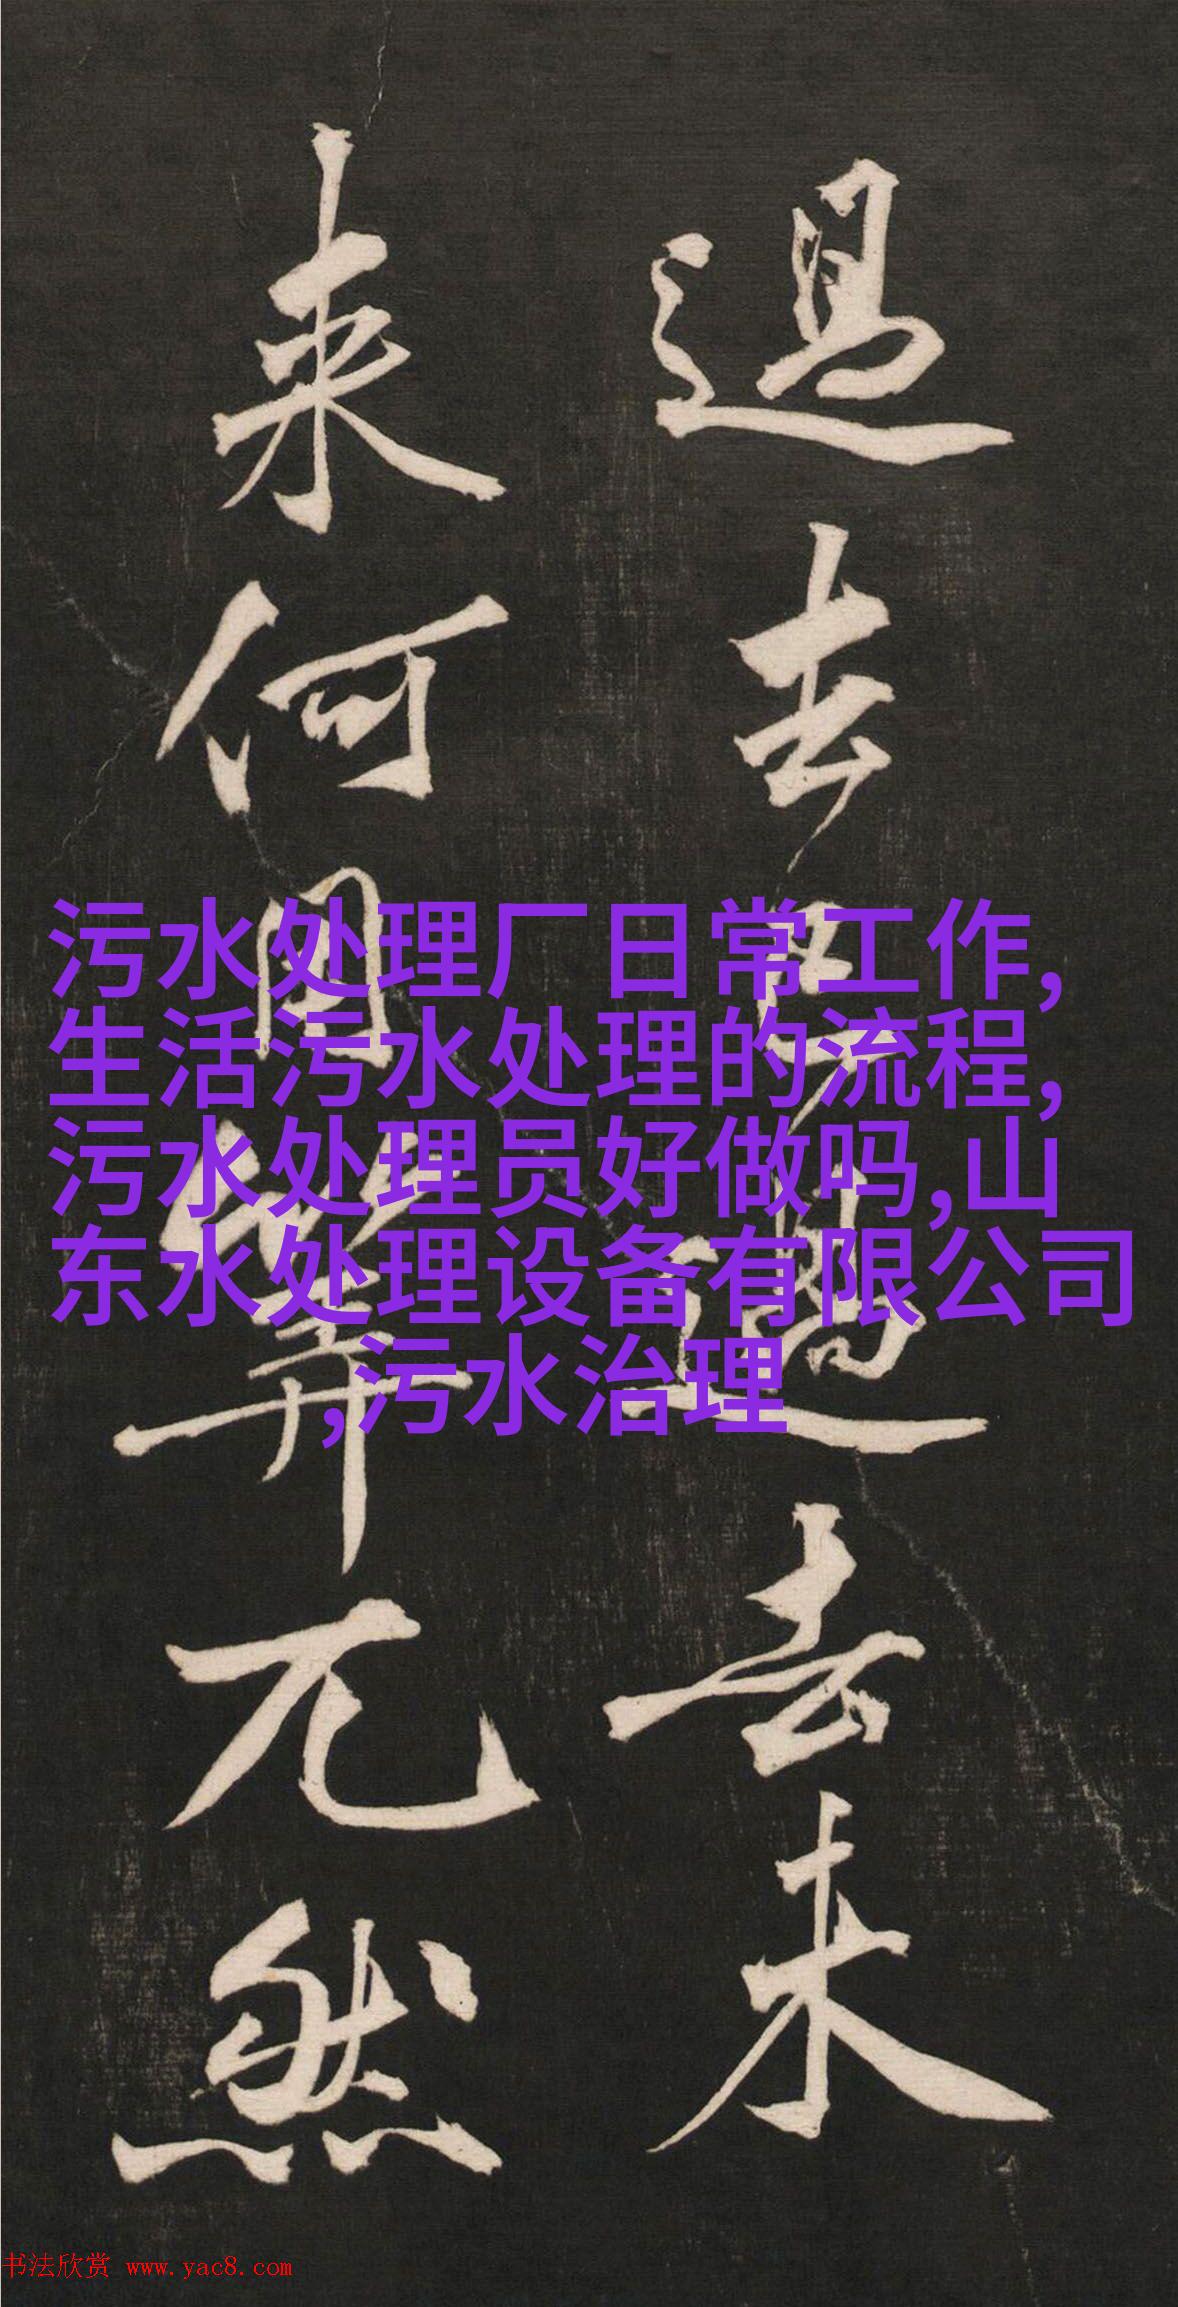 過去已過去未
来何用筭兀然
污水处理厂日常工作,
生活污水处理的流程,
污水处理员好做吗,山
东水处理设备有限公司
,污水治理
书法欣赏 www.yac8.com